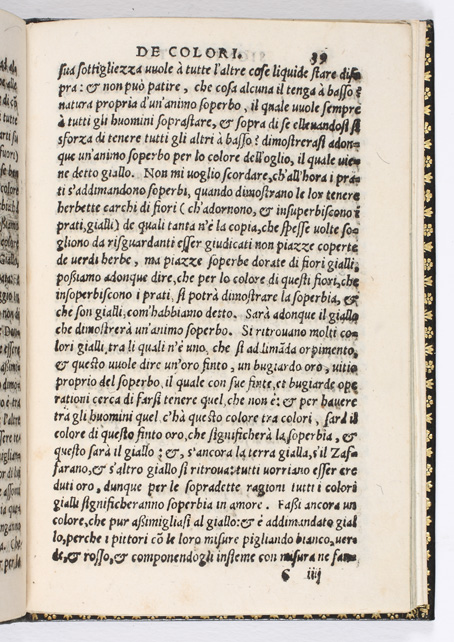 DE COLORI. 39
sua sottigliezza vuole à tutte l'altre cose liquide stare disopra
pra: & non può patire, che cosa alcuna il tenga à basso:
natura propria d'un'animo soperbo, il quale vuole sempre
à tutti gli huomini soprastare, & sopra di se ellevandosi si
sforza di tenere tutti gli altri à basso: dimostrerasi adon-
que un'animo soperbo per lo colore dell'oglio, il quale vie-
ne detto giallo. Non mi voglio scordare, ch'all'hora i pra-
ti s'addimandono soperbi, quando dimostrano le lor tenere
herbette carchi di fiori (ch'adornono, & insuperbiscono i
prati, gialli) de quali tanta n'è la copia, che spesse volte so-
gliono da risguardanti esser giudicati non piazze coperte
de verdi herbe, ma piazze soperbe dorate di fiori gialli,
possiamo adonque dire, che per lo colore di questi fiori, che
insoperbiscono i prati, si potrà dimostrare la soperbia, &
che son gialli, com'habbiamo detto. Sarà adonque il giallo
che dimostrerà un'animo soperbo. Si ritrovano molti co-
lori gialli, tra li quali n'è uno, che si ad limãda orpimento,
& questo vuole dire un'oro finto, un bugiardo oro, vitio
proprio del soperbo, il quale con sue finte, et bugiarde ope
rationi cerca di farsi tenere quel, che non è: & per havere
tra gli huomini quel c'hà questo colore tra colori, sarà il
colore di questo finto oro, che significherà la soperbia, &
questo sarà il giallo: &, s'ancora la terra gialla, s'il Zaf-
farano, & s'altro giallo si ritrova: tutti vorriano esser cre
duti oro, dunque per le sopradette ragioni tutti i colori
gialli significheranno soperbia in amore. Fassi ancora un
colore, che pur assimigliasi al giallo: & è addimandato gial
lo, perche i pittori cõ le loro misure pigliando bianco, ver-
de, & rosso, & componendogli insieme con misura ne fan-
G iiij